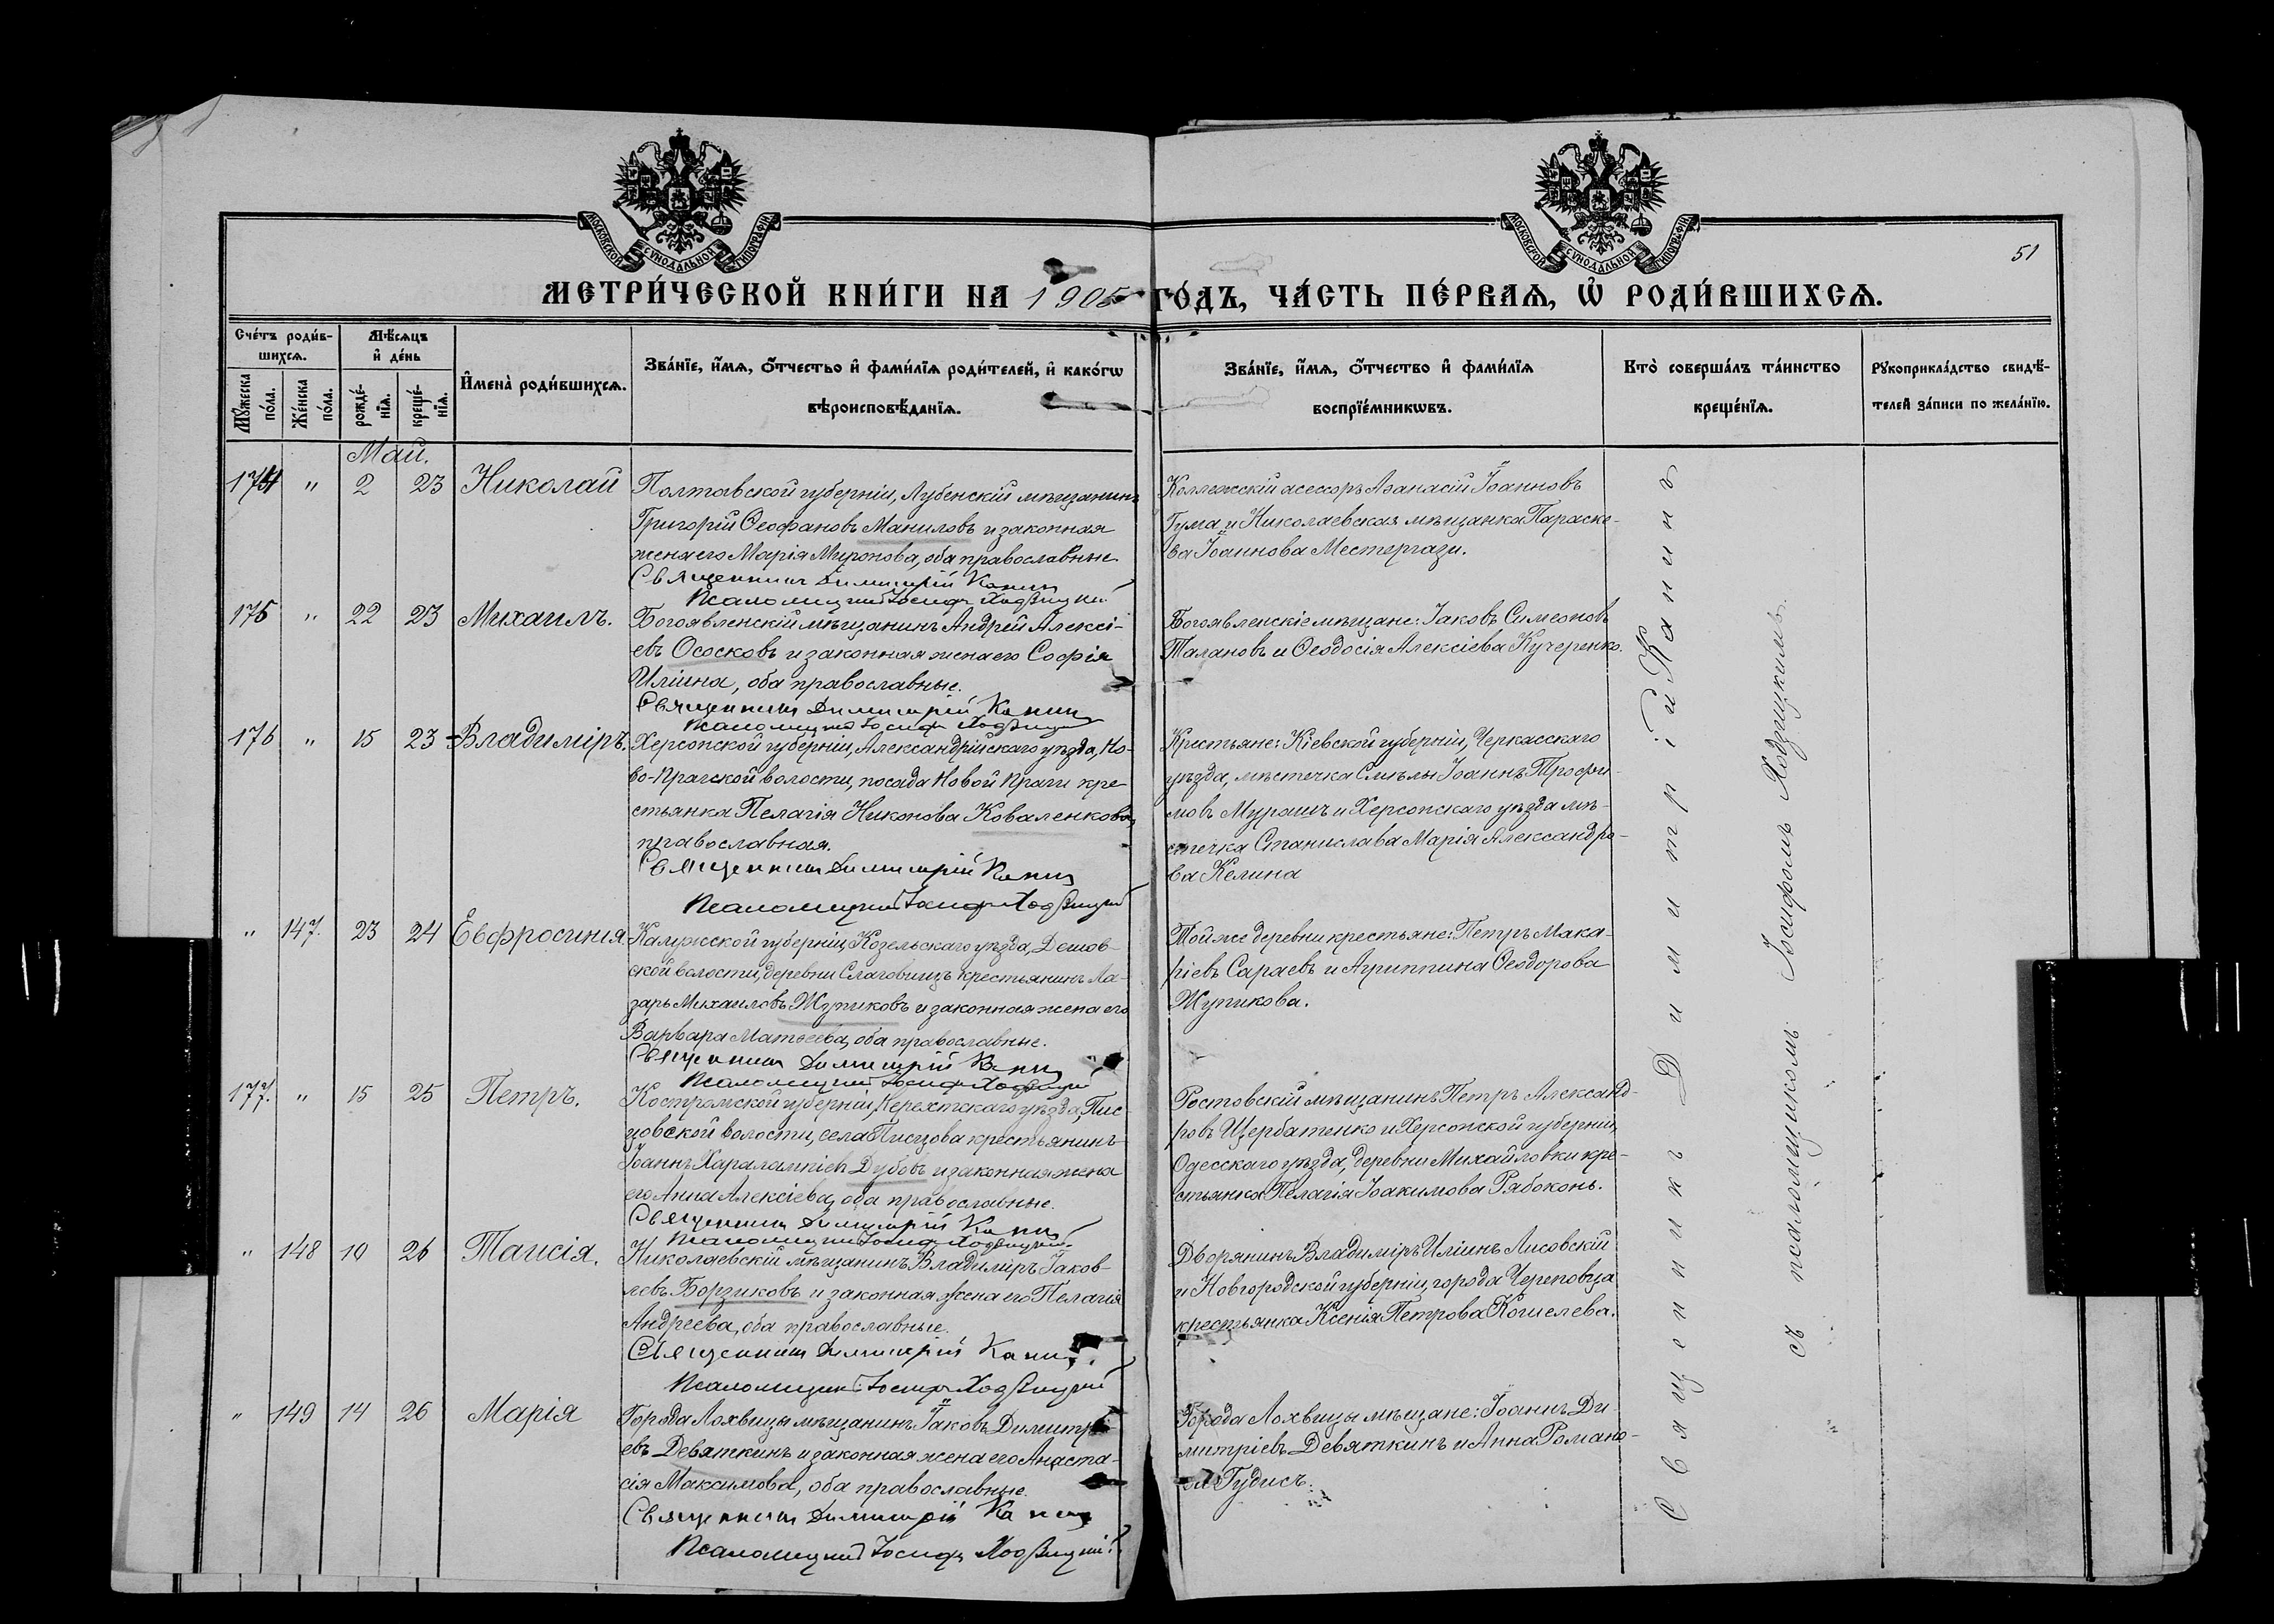 МОСКОВСКОЙ СѴНОДАЛЬНОЙ ТИПОГРАФІИ
МОСКОВСКОЙ СѴНОДАЛЬНОЙ ТИПОГРАФІИ
51
МЕТРИ́ЧЕСКОЙ КНИ́ГИ НА 1905 ГО́ДЪ, ЧА́СТЬ ПЕ́РВАѦ, Ѡ҆ РОДИ́ВШИХСѦ.
Сче́тъ роди́в-
шихсѧ.
Мꙋ́жеска
по́ла.
Же́нска
по́ла.
Мѣ́сѧцъ
и҆ де́нь
рожде́-
нїѧ.
креще́-
нїѧ.
И҆мена̀ роди́вшихсѧ.
Зва́нїе, и҆́мѧ, ѻ҆́тчество и҆ фами́лїѧ роди́телей, и҆ како́гѡ
вѣроисповѣ́данїѧ.
Зва́нїе, и҆́мѧ, ѻ҆́тчество и҆ фами́лїѧ
воспрїе́мникѡвъ.
Кто̀ соверша́лъ та́инство
креще́нїѧ.
Рꙋкоприкла́дство свидѣ́-
телей за́писи по жела́нїю.
Май.
174 " 2 23 Николай
Полтавской губерніи, Лубенскій мѣщанинъ
Григорій Ѳеофановъ Маниловъ и законная
жена его Марія Миронова, оба православные.
Священникъ Димитрій Канин
Псаломщикъ Іосифъ Ходзицкій
Коллежскій асессоръ Аѳанасій Іоанновъ
Гума и Николаевская мѣщанка Параске-
ва Іоаннова Местергази.
175 " 22 23 Михаилъ.
Богоявленскій мѣщанинъ Андрей Алексі-
евъ Ососковъ и законная жена его Софія
Иліина, оба православные.
Священникъ Димитрій Канин
Псаломщикъ Іосифъ Ходзицкій
Богоявленскіе мѣщане: Іаковъ Симеоновъ
Талановъ и Ѳеодосія Алексіева Кучеренко.
176 " 15 23 Владиміръ.
Херсонской губерніи, Александрійскаго уѣзда, Но-
во-Прагской волости, посада Новой Праги кре-
стьянка Пелагія Никонова Коваленкова,
православная.
Священникъ Димитрій Канин
Псаломщикъ Іосифъ Ходзицкій
Крестьяне: Кіевской губерніи, Черкасскаго
уѣзда, мѣстечка Смѣлы Іоаннъ Трофи-
мовъ Мурашъ и Херсонскаго уѣзда мѣ-
стечка Станислава Марія Александро-
ва Келина
" 147. 23 24 Евфросинія
Калужской губерніи, Козельскаго уѣзда, Дешов-
ской волости, деревни Слаговищъ крестьянинъ Ла-
зарь Михаиловъ Жупиковъ и законная жена его
Варвара Матѳеева, оба православные.
Священникъ Димитрій Канин
Псаломщикъ Іосифъ Ходзицкій
Той же деревни крестьяне: Петръ Мака-
ріевъ Сараевъ и Агриппина Ѳеодорова
Жупикова.
177. " 15 25 Петръ.
Костромской губерніи, Нерехтскаго уѣзда, Пис-
цовской волости, села Писцова крестьянинъ
Іоаннъ Харалампіевъ Дубовъ и законная жена
его Анна Алексіева, оба православные.
Священникъ Димитрій Канин
Псаломщикъ Іосифъ Ходзицкій
Ростовскій мѣщанинъ Петръ Александ-
ровъ Щербатенко и Херсонской губерніи,
Одесскаго уѣзда, деревни Михайловки кре-
стьянка Пелагія Іоакимова Рябоконь.
" 148 10 26 Таисія.
Николаевскій мѣщанинъ Владиміръ Іаков-
левъ Борзиковъ и законная жена его Пелагія
Андреева, оба православные.
Священникъ Димитрій Канин
Псаломщикъ Іосифъ Ходзицкій
Дворянинъ Владиміръ Иліинъ Лисовскій
и Новгородской губерніи, города Череповца
крестьянка Ксенія Петрова Кошелева.
" 149 14 26 Марія
Города Лохвицы мѣщанинъ Іаковъ Димитрі-
евъ Девяткинъ и законная жена его Анаста-
сія Максимова, оба православные.
Священникъ Димитрій Канин
Псаломщикъ Іосифъ Ходзицкій
Города Лохвицы мѣщане: Іоаннъ Ди-
митріевъ Девяткинъ и Анна Романо-
ва Гудисъ.
Священникъ Димитрій Канинъ
съ псаломщикомъ Іосифомъ Ходзицкимъ.